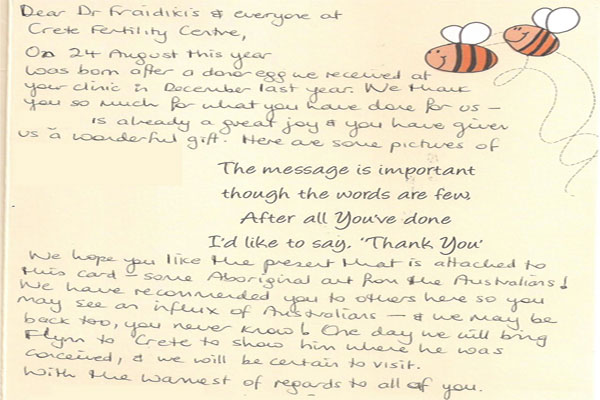 Dear Dr Fraidikis & everyone at
Crete Fertility Centre,
On 24 August this year
was born after a donor egg we received at
your clinic in December last year. We thank
you so much for what you have done for us –
is already a great joy & you have given
us a wonderful gift. Here are some pictures of
The message is important
though the words are few,
After all You've done
I'd like to say, 'Thank You'
We hope you like the present that is attached to
this card – some Aboriginal art from the Australians!
We have recommended you to others here so you
may see an influx of Australians – & we may be
back too, you never know! One day we will bring
Flynn to Crete to show him where he was
conceived, & we will be certain to visit.
With the warmest of regards to all of you.